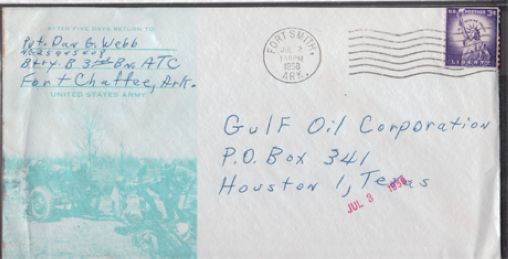 AFTER FIVE DAYS RETURN TO
Pvt. Dan G. Webb
Btry. B 3rd Bn. ATC
Fort Chaffee, Ark.
UNITED STATES ARMY
FORT SMITH,
JUL 2
PM
1958
ARK.
U.S. POSTAGE 3¢
LIBERTY
Gulf Oil Corporation
P.O. Box 341
Houston 1, Texas
JUL 3 1958